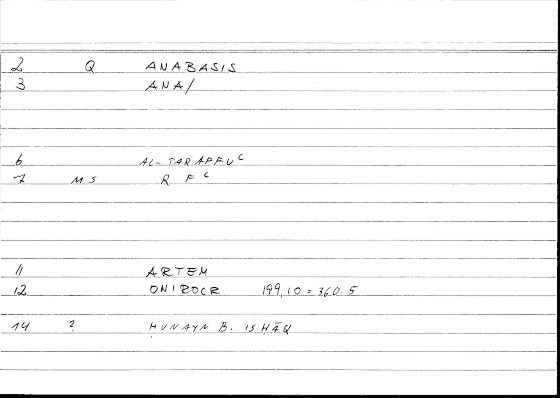 2 Q ANABASIS
3 ANA/
6 AL-TARAFFUʿ
7 MS R Fʿ
11 ARTEM
12 ONIROCR 199,10 = 360.5
14 ? ḤUNAYN B. ISḤĀQ